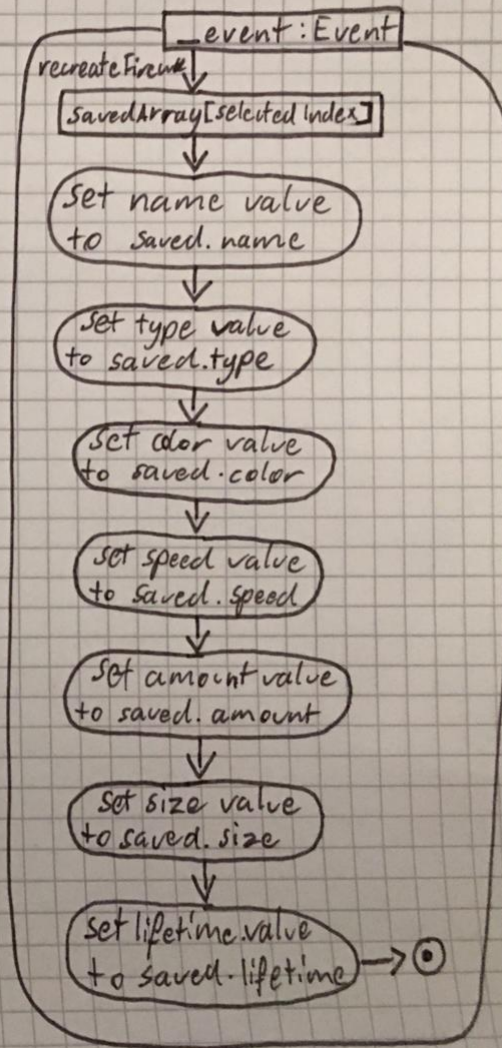 _event: Event
recreateFirew
savedArray[selectedIndex]
set name value
to saved.name
set type value
to saved.type
set color value
to saved.color
set speed value
to saved.speed
set amount value
to saved.amount
set size value
to saved.size
set lifetime.value
to saved.lifetime